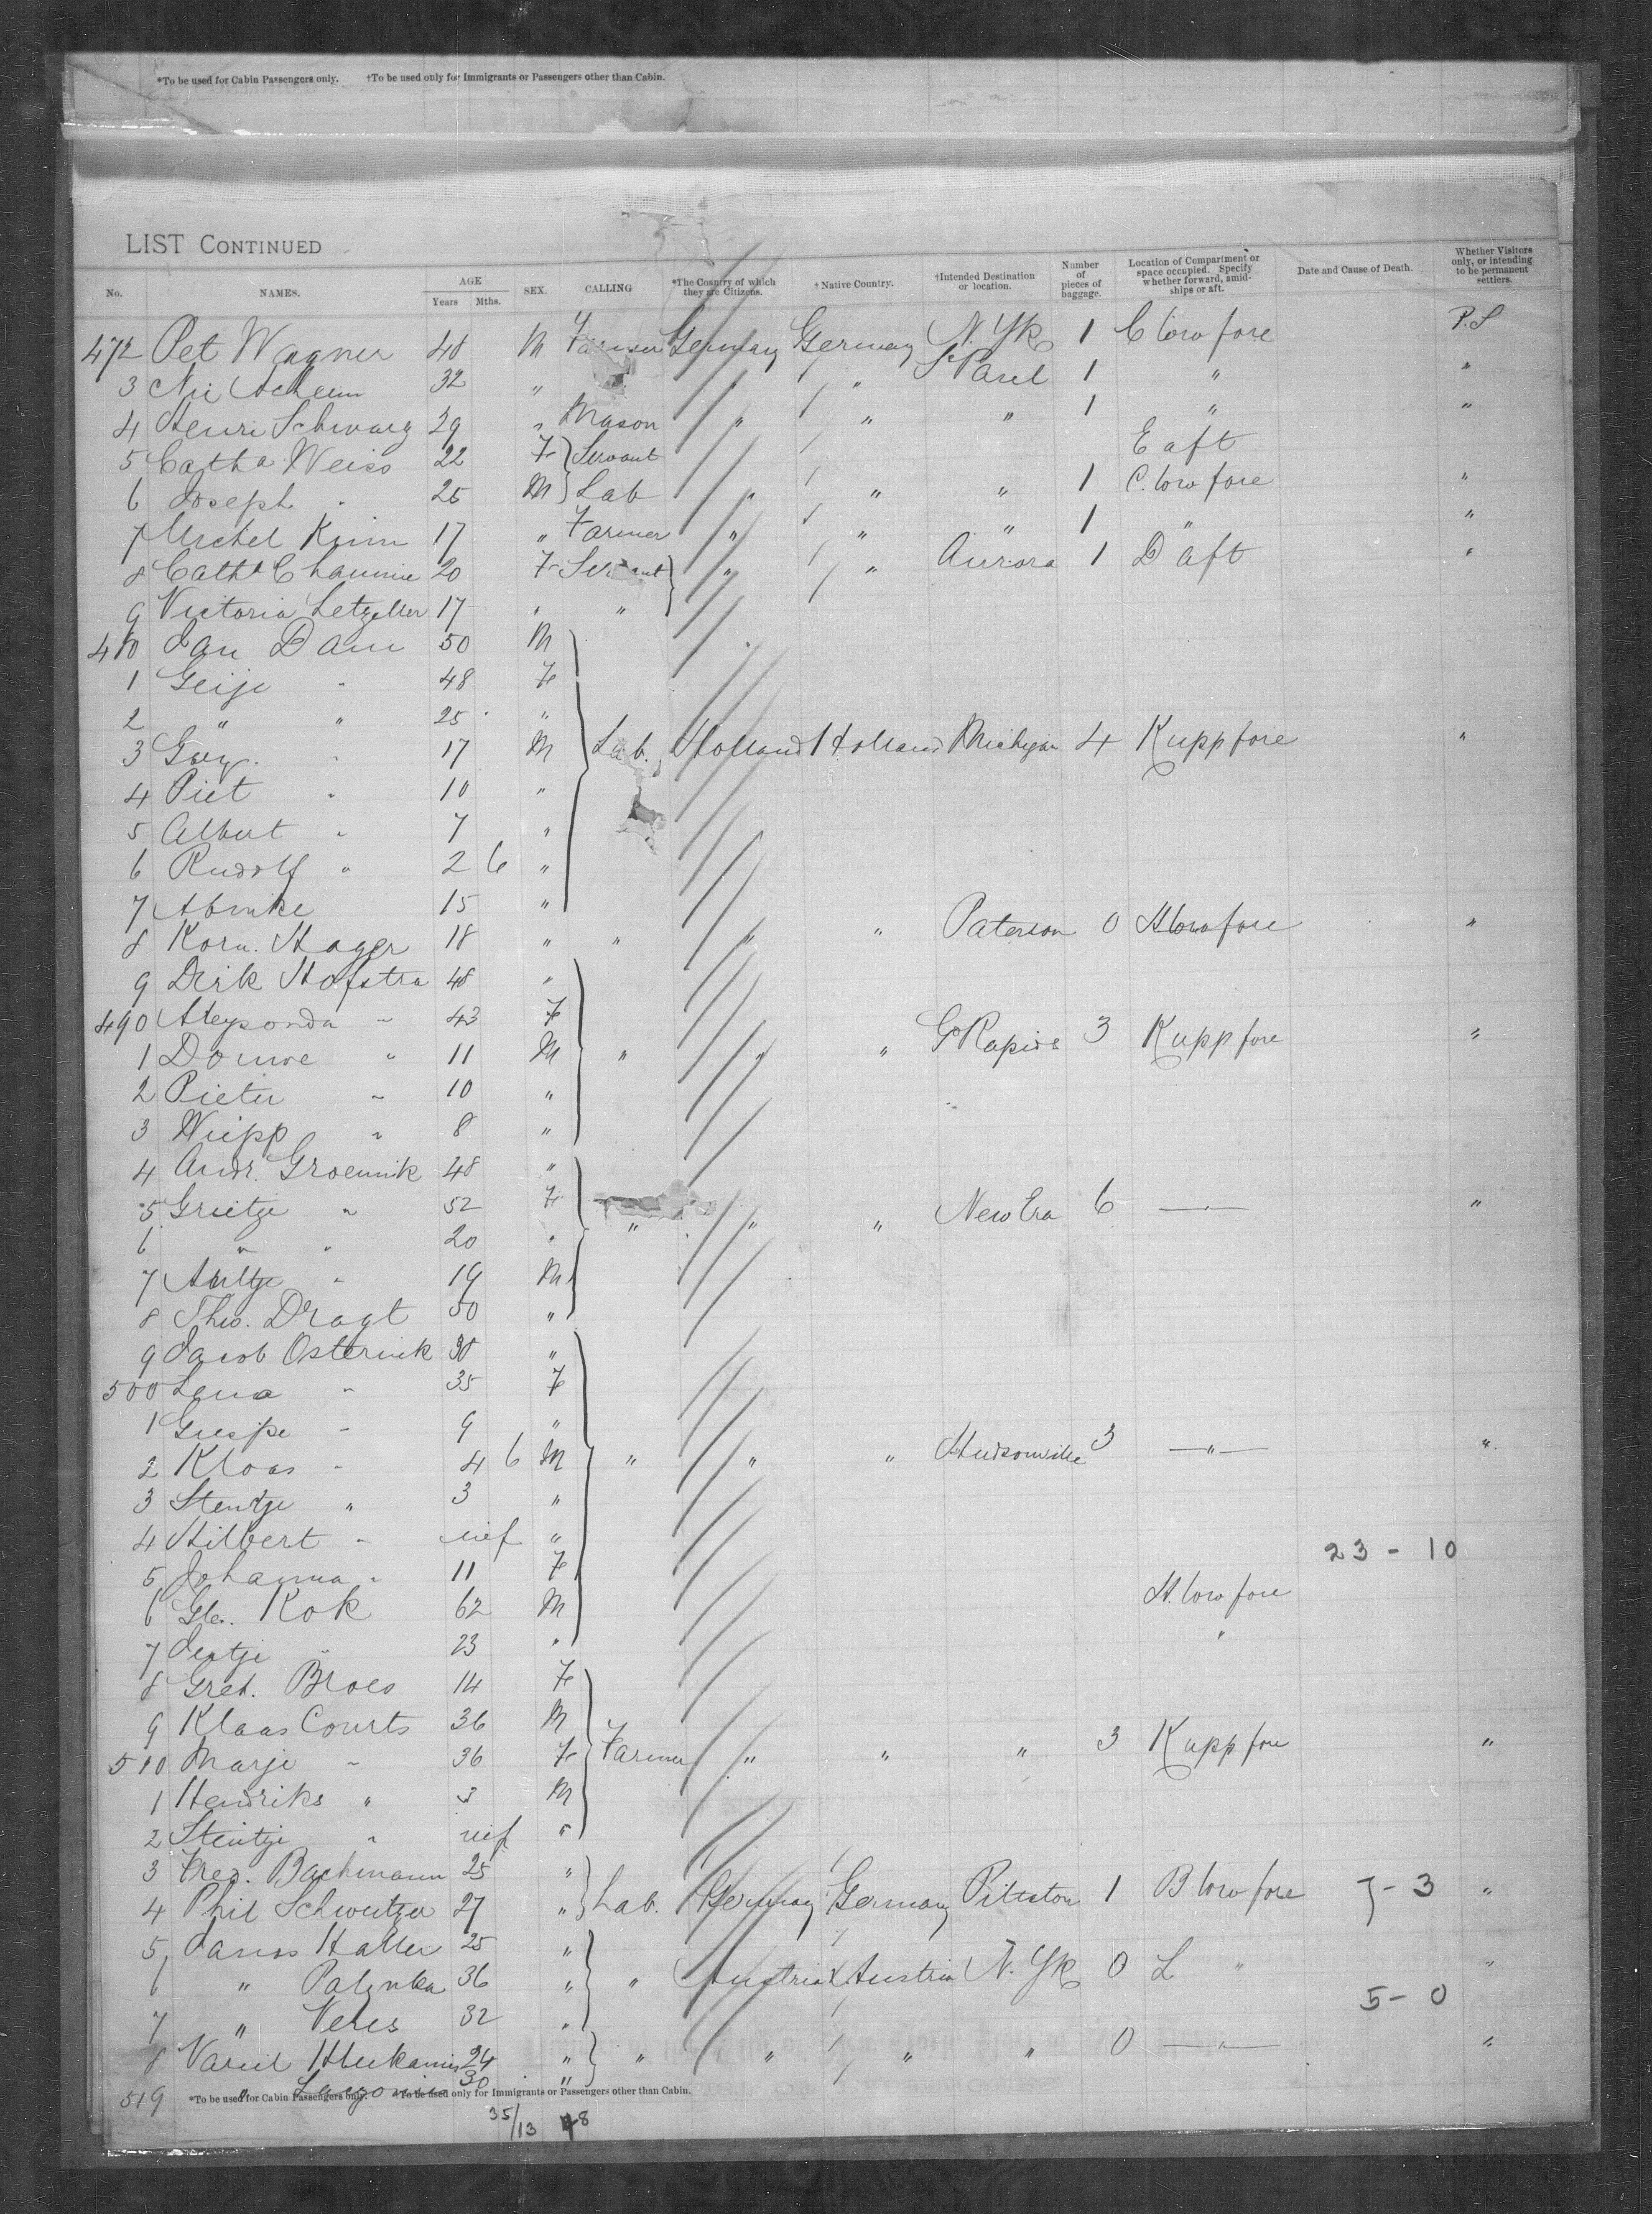 *To be used for Cabin Passengers only. †To be used only for Immigrants or Passengers other than Cabin.
LIST CONTINUED
No. NAMES. AGE Years Mths. SEX. CALLING *The Country of which they are Citizens. †Native Country. †Intended Destination or location. Number of pieces of baggage. Location of Compartment or space occupied. Specify whether forward, amidships or aft. Date and Cause of Death. Whether Visitors only, or intending to be permanent settlers.
472 Pet Wagner 48 M Farmer Germany Germany N. Yk 1 C low fore P.S
3 32 " " " St Paul 1 " "
4 Henri Schwarz 29 " Mason " " " 1 " "
5 Catha Weiss 22 F Servant E aft
6 Joseph " 25 M Lab " " " 1 C. low fore "
7 Michel Kinn 17 " Farmer " " " 1 " "
8 Catha 20 F Servant " " Aurora 1 D aft "
9 Victoria Letzeller 17 " "
480 Jan Dam 50 M
1 Geije " 48 F
2 " " 25 "
3 " 17 M Lab. Holland Holland Michigan 4 K upp fore "
4 Piet " 10 "
5 Albert " 7 "
6 Rudolf " 2 6 "
7 15 "
8 Korn. Hager 18 " " " " Paterson 0 H low fore "
9 Dirk Hofstra 48 "
490 " 43 F
1 Douwe " 11 M " " " Gd Rapids 3 K upp fore "
2 Pieter " 10 "
3 Wiepp " 8 "
4 Andr. 48 "
5 Grietje " 52 F " " " New Era 6 — " — "
6 " " 20 "
7 " 19 M
8 Theo. Dragt 50 "
9 Jacob Osterink 38 "
500 Lena " 35 F
1 " 9 "
2 Klaas " 4 6 M " " " Hudsonville 3 — " — "
3 Stentje " 3 "
4 Hilbert " inf "
23 - 10
5 Johanna " 11 F
6 Kok 62 M H. low fore
7 Jentje " 23 " "
8 Gret. Broes 14 F
9 Klaas Courts 36 M
510 Marje " 36 F Farmer " " " 3 K upp fore "
1 Hendriks " 3 M
2 Steintje " inf "
3 Fred. Bachmann 25 "
4 Phil Schweitzer 27 " Lab. Germany Germany Pittston 1 B low fore 7 - 3 "
5 Janos Haller 25 "
6 " 36 " " Austria Austria N. Yk 0 L " "
5 - 0
7 " Veres 32 "
8 24 " " " " " 0 — " — "
519 " 30 "
*To be used for Cabin Passengers only. †To be used only for Immigrants or Passengers other than Cabin.
35/13 48